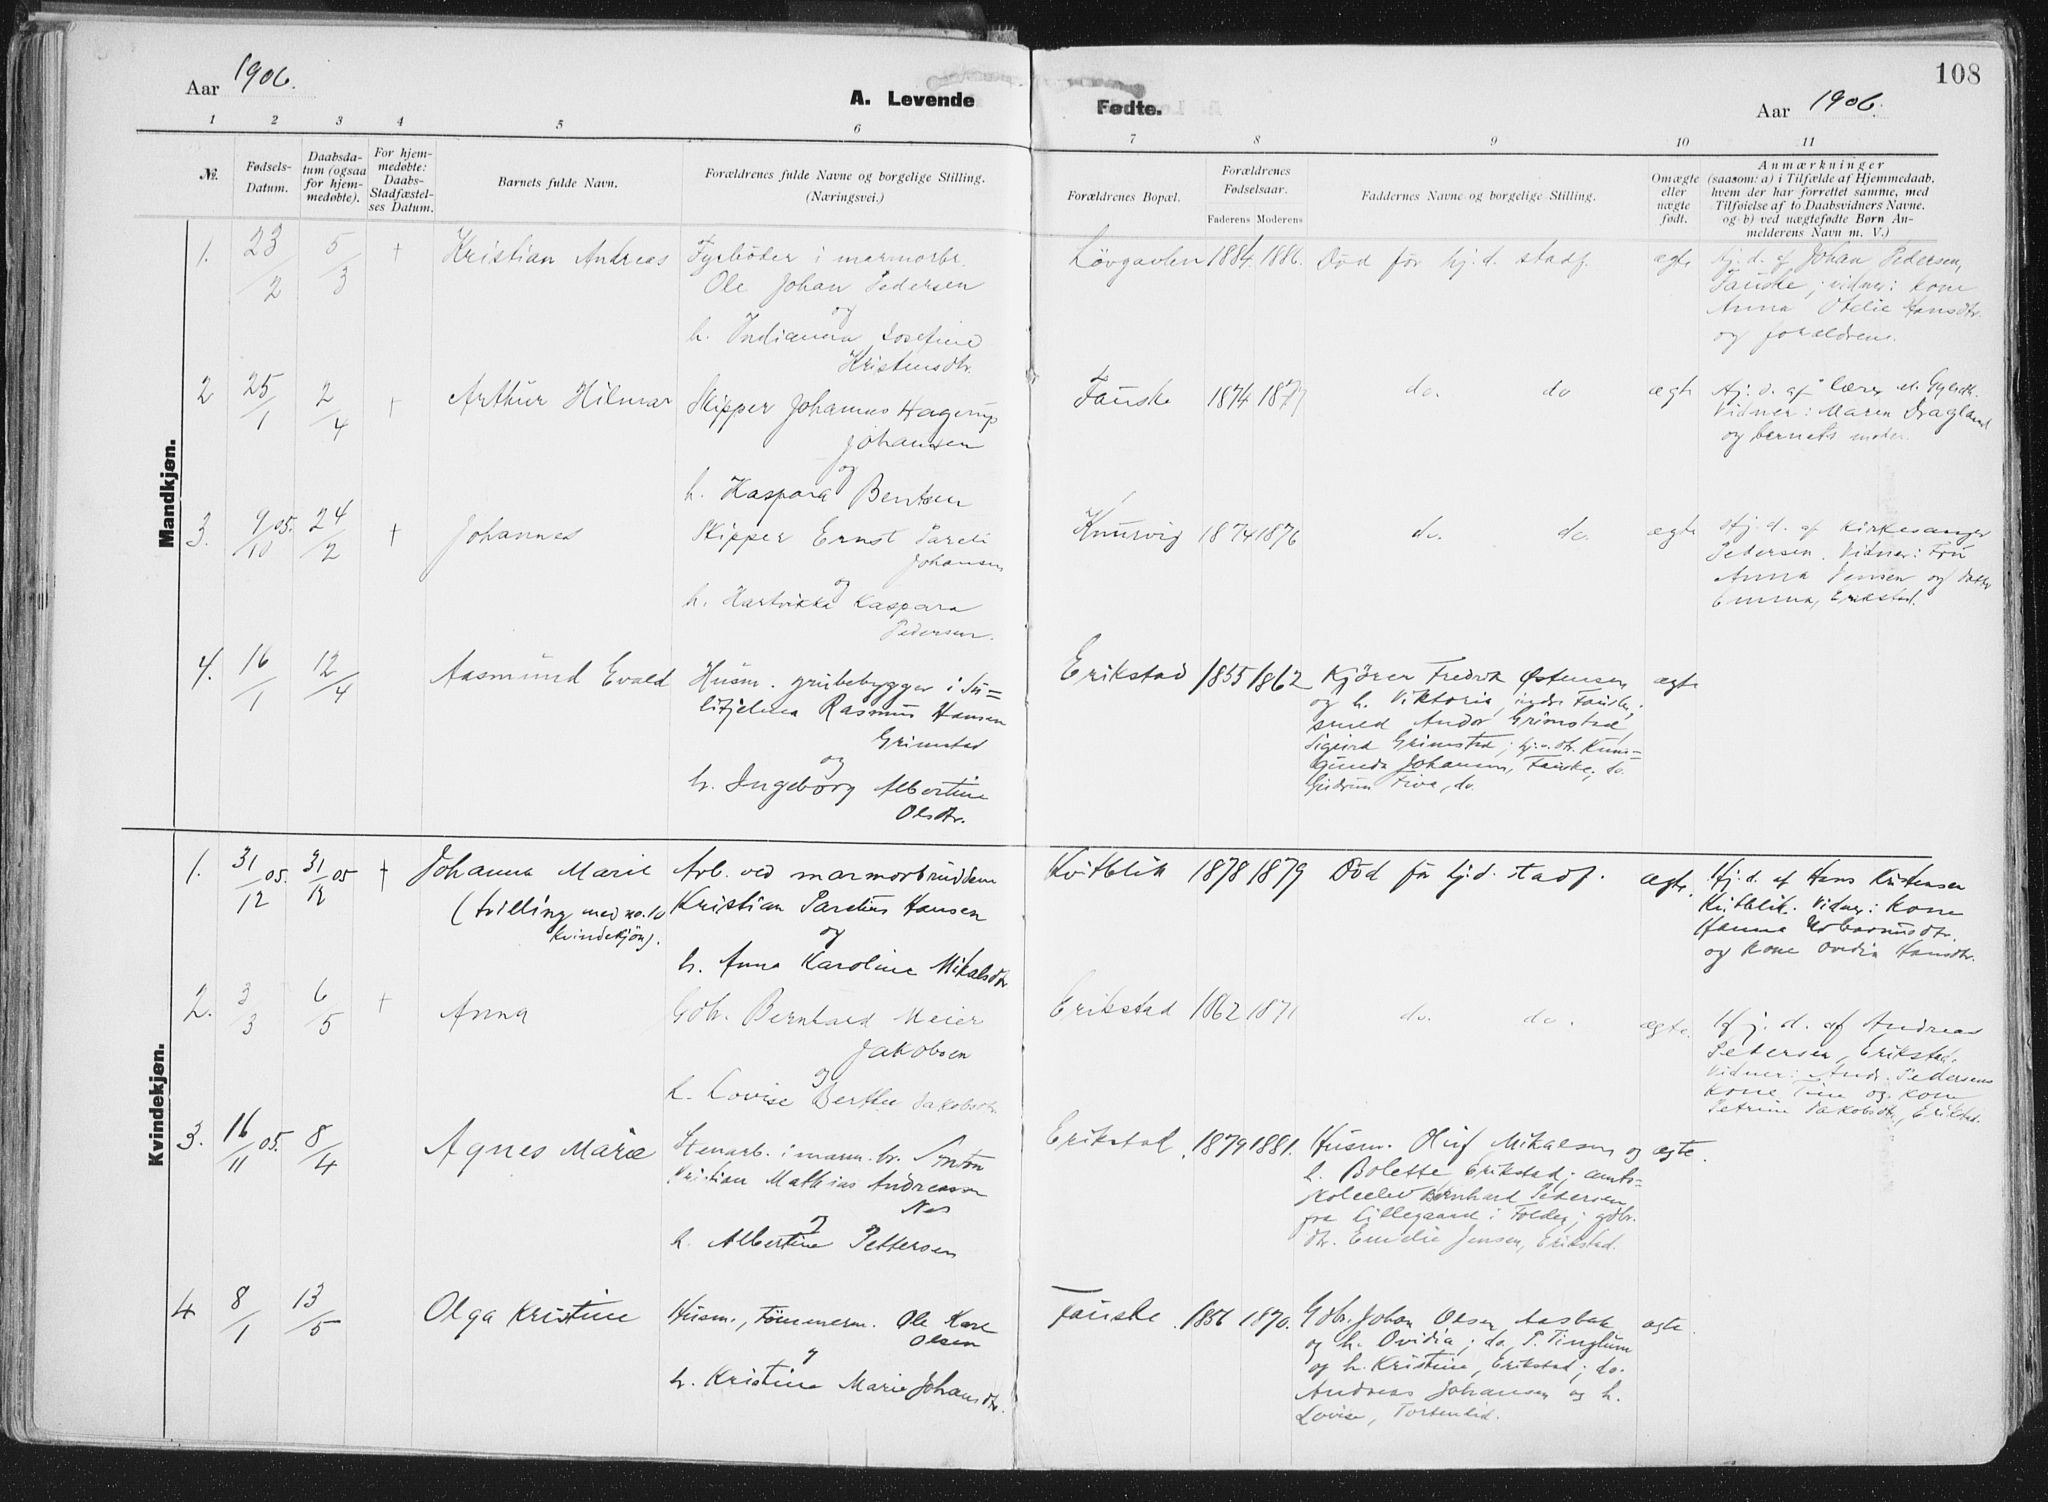 Aar 1906.
A. Levende
Fødte.
Aar 1906.
108
1 2 3 4 5 6 7 8 9 10 11
№.
Fødsels-
Datum.
Daabsda-
tum (ogsaa
for hjem-
medøbte).
For hjem-
medøbte:
Daabs-
Stadfæstel-
ses Datum.
Barnets fulde Navn.
Forældrenes fulde Navne og borgelige Stilling.
(Næringsvei.)
Forældrenes Bopæl.
Forældrenes
Fødselsaar.
Faderens Moderens
Faddernes Navne og borgelige Stilling.
Omægte
eller
uægte
født.
Anmærkninger
(saasom: a) i Tilfælde af Hjemmedaab,
hvem der har forrettet samme, med
Tilføielse af to Daabsvidners Navne.
og b) ved uægtefødte Børn An-
melderens Navn m. V.)
Mandkjøn.
1. 23/2 5/3 + Kristian Andreas
Fyrbøder i marmorbr.
Ole Johan Pedersen
og
h. Indianna Josefine
Kristensdtr.
Løvgavlen 1884. 1886. Død før hj.d. stadf. ægte
Hj. d. af Johan Pedersen,
Fauske; vidner: kone
Anna Otelie Hansdtr.
og forældrene.
2 25/1 2/4 + Arthur Hilmar
Skipper Johannes Hagerup
Johansen
og
h. Kaspara Bentsen
Fauske 1874 1877 do. do ægte
Hj. d. af lærer
Vidner: Maren Dragland
og barnets moder.
3. 9/10 05. 24/2 + Johannes
Skipper Ernst Pareli
Johansen
og
h. Hartvikka Kaspara
Pedersen.
Knurvig 1874 1876 do. do. ægte
Hj. d. af kirkesanger
Pedersen. Vidner: Fru
Anna Jensen og datter
Emma, Erikstad.
4. 16/1 12/4 Aasmund Evald
Husm. grubebygger i Su=
litjelma Rasmus Hansen
Grimstad
og
h. Ingeborg Albertine
Olsdtr.
Erikstad 1855 1862
Kjører Fredrik Østensen
og h. Viktoria, indre Fauske;
smed Andor Grimstad
Sigurd Grimstad; dtr. Kuni=
gunda Johansen, Fauske; do.
Gudrun Five, do.
ægte
Kvindekjøn.
1. 31/12 05. 31/12 05 + Johanna Marie
(tvilling med no. 10
kvindekjøn).
Arb. ved marmorbruddene
Kristian Parelius Hansen
og
h. Anna Karoline Mikalsdtr
Kvitblik 1878 1879 Død før hj.d. stadf. ægte.
Hj. d. af Hans Kristensen
Kvitblik. Vidner: kone
Hanna Urbanusdtr.
og kone Ovidia Hansdtr.
2. 3/3 6/5 + Anna
Gdbr. Bernhard Meier
Jakobsen
og
h. Lovise Berthe Jakobsdtr.
Erikstad 1862 1871 do. do. ægte.
Hj. d. af Andreas
Petersen, Erikstad.
Vidner: Andr. Pedersens
kone Tine og kone
Petrine Jakobsdtr., Erikstad.
3. 16/11 05. 8/4 Agnes Marie
Stenarb. i marm. br. Anton
Kristian Mathias Andreassen
Nes
og
h. Albertine Pettersen
Erikstad. 1879 1881.
Husm. Oluf Mikalsen og
h. Bolette Erikstad; amts=
skoleelev Bernhard Pedersen
fra Lillegaard i Folden; gdbr.
dtr. Emelie Jensen, Erikstad.
ægte.
4 8/1 13/5 Olga Kristine
Husm., Tømmerm. Ole Karl
Olsen
og
h. Kristine Marie Johansdtr.
Fauske. 1856 1870.
Gdbr. Johan Olsen Aasbak
og h. Ovidia; do. P. Tinglum
og h. Kristine, Erikstad; do.
Andreas Johansen og h.
Lovise, Tortenlid.
ægte.